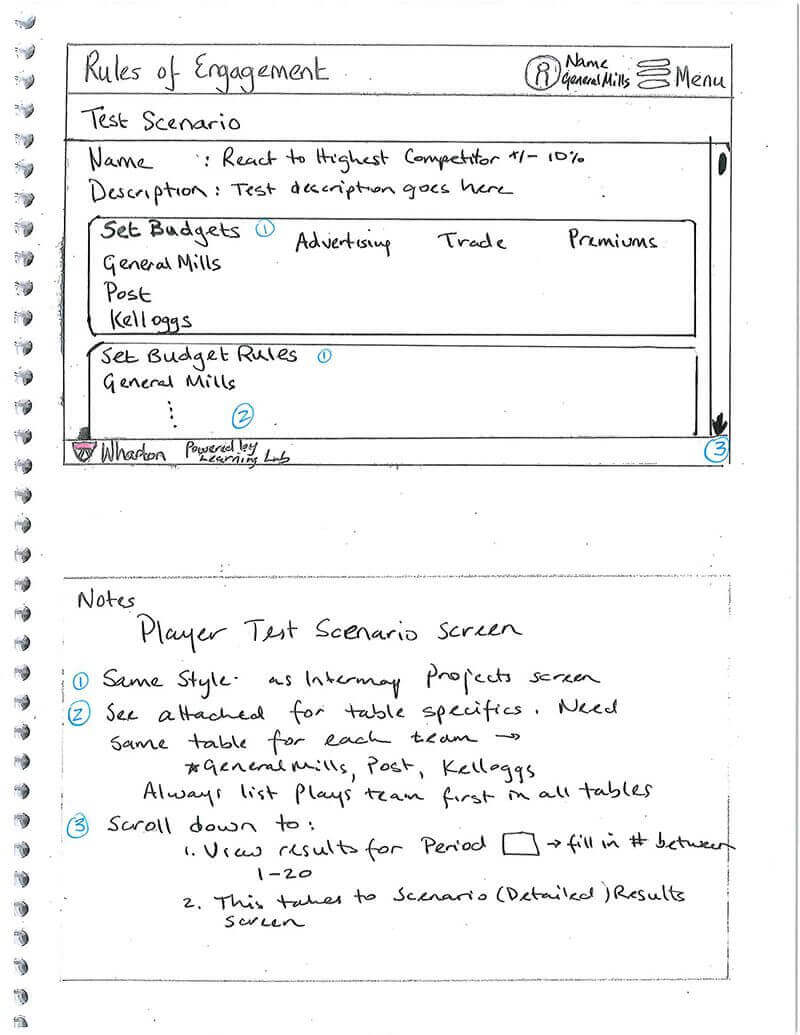 Rules of Engagement
Name
General Mills
Menu
Test Scenario
Name : React to Highest Competitor +/- 10%
Description : Test description goes here
Set Budgets ① Advertising Trade Premiums
General Mills
Post
Kelloggs
Set Budget Rules ①
General Mills
②
Wharton Powered by
Learning Lab
③
Notes
Player Test Scenario Screen
① Same Style as Intermap Projects screen
② See attached for table specifics. Need
same table for each team →
*General Mills, Post, Kelloggs
Always list Plays team first in all tables
③ Scroll down to:
1. View results for Period → fill in # between
1-20
2. This takes to Scenario (Detailed) Results
screen